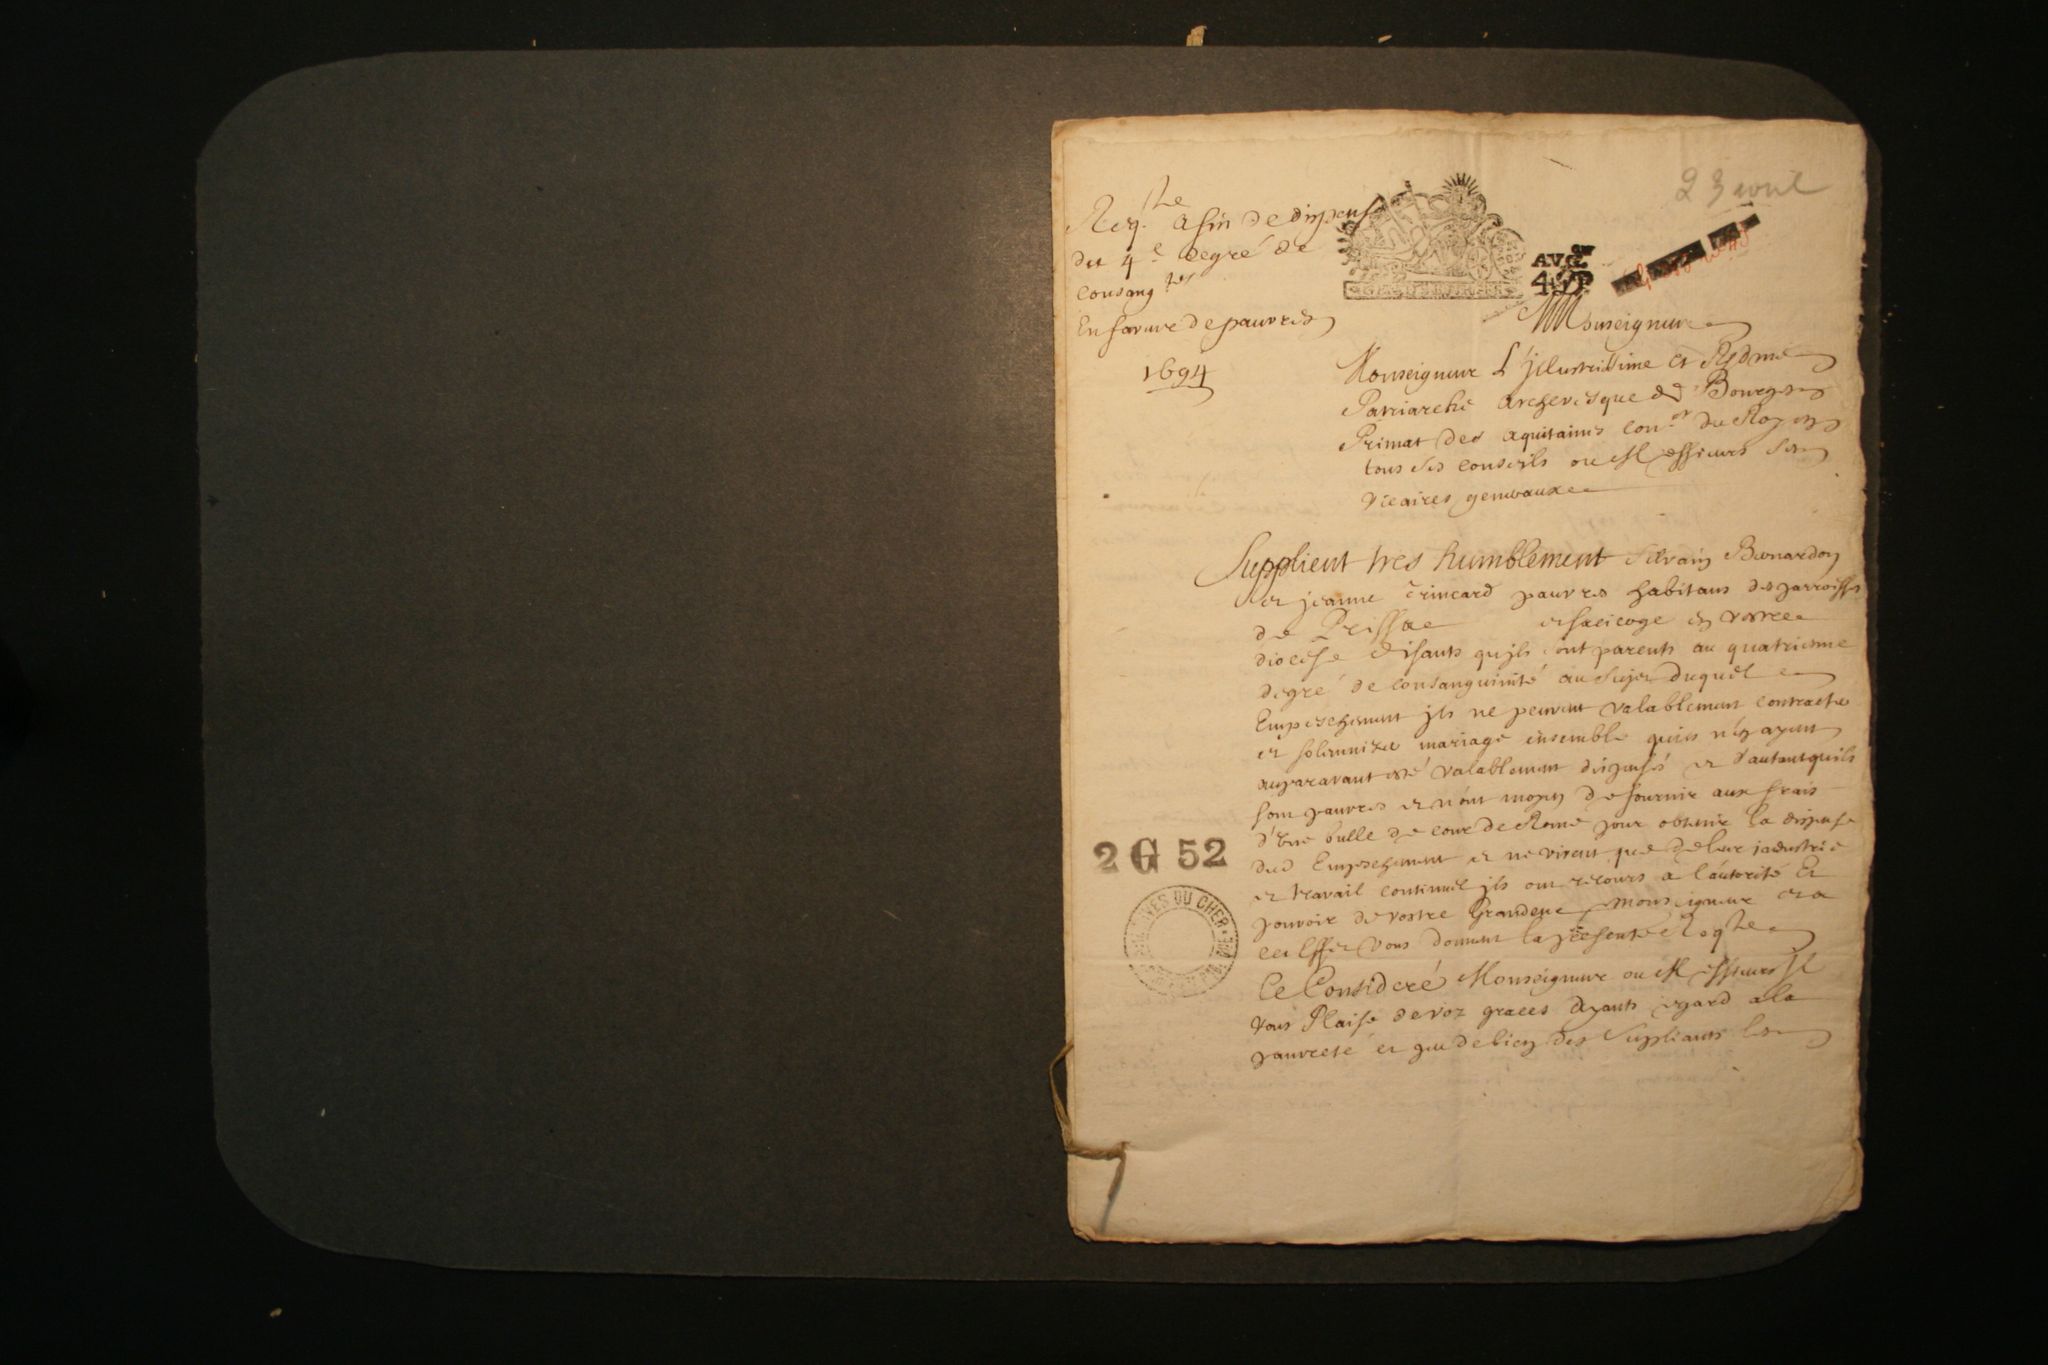 23 avril
Req.te afin de dispense
du 4e degré de
consang.tés
En faveur de pauvres
1694
AVG.
4 S P
Monseigneur
Monseigneur L'jllustrissime et R'dme
Patriarche archevesque de Bourges
Primat des aquitaines con.er du Roy en
tous ses conseils ou Messieurs ses
Vicaires generaux
Supplient tres humblement Silvain Bernardon
et jeanne Crincard pauvres habitans des parroisses
de Prissac et sacierge en vostre
diocese disants qu'jls sont parents au quatriesme
degré de consanguinité au sujet duquel
Empeschement jls ne peuvent valablement contracter
et solemnizer mariage ensemble qu'ils n'en ayent
auparavant esté valablement dispensés et d'autant qu'ils
sont pauvres et n'ont moyen de fournir aux frais
d'vne bulle de cour de Rome pour obtenir la dispense
dud Empeschement et ne vivent que de leur jndustrie
et travail continuel jls ont recours a l'autorité Et
pouvoir de vostre Grandeur Monseigneur et a
cet Effet vous donnent la presente Reqte
Ce Consideré Monseigneur ou Messieurs Jl
vous Plaise de voz graces Ayants egard a la
pauvreté et peu de bien des Suppliants les
2 G 52
ARCHIVES DU CHER